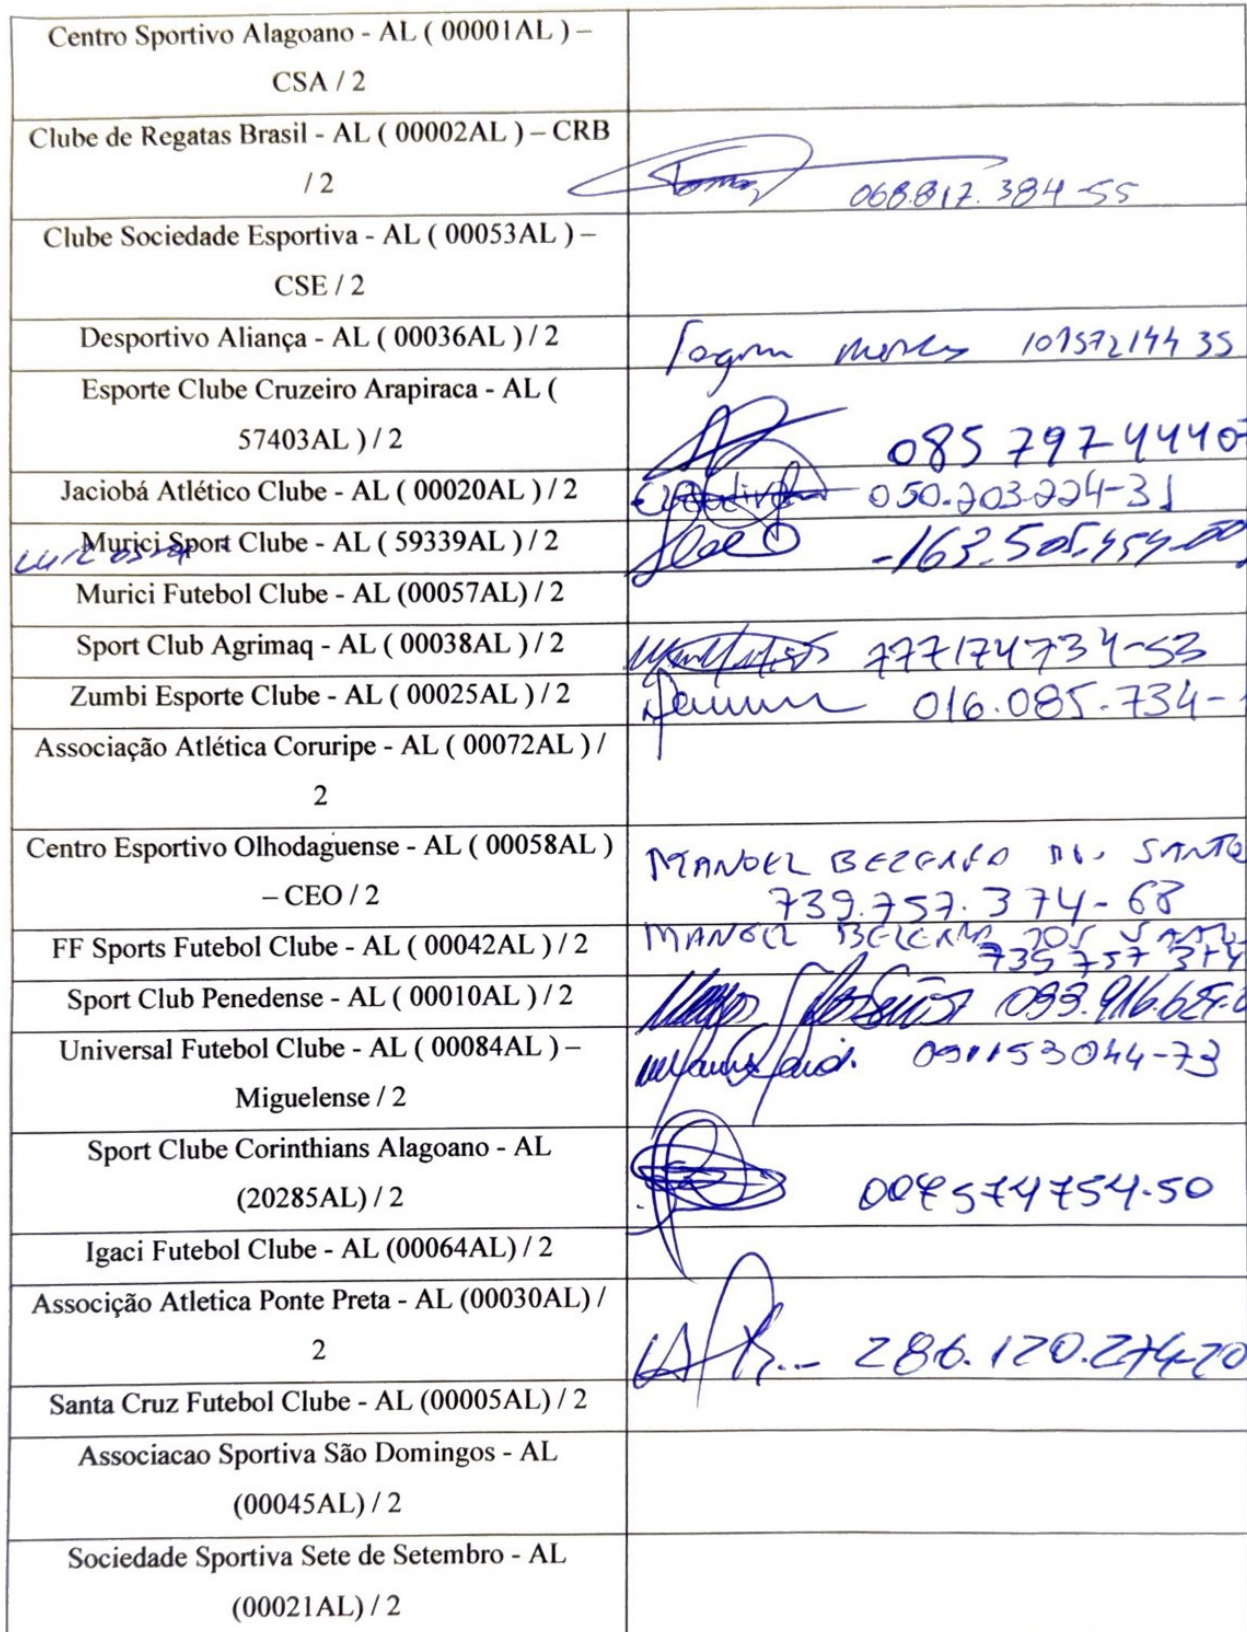 Centro Sportivo Alagoano - AL ( 00001AL ) –
CSA / 2
Clube de Regatas Brasil - AL ( 00002AL ) – CRB
/ 2
068.817.384-55
Clube Sociedade Esportiva - AL ( 00053AL ) –
CSE / 2
Desportivo Aliança - AL ( 00036AL ) / 2
10157214435
Esporte Clube Cruzeiro Arapiraca - AL (
57403AL ) / 2
085 797 44407
Jaciobá Atlético Clube - AL ( 00020AL ) / 2
050.203.224-31
Murici Sport Clube - AL ( 59339AL ) / 2
Murici Futebol Clube - AL (00057AL) / 2
Sport Club Agrimaq - AL ( 00038AL ) / 2
777174734-53
Zumbi Esporte Clube - AL ( 00025AL ) / 2
016.085.734-
Associação Atlética Coruripe - AL ( 00072AL ) /
2
Centro Esportivo Olhodaguense - AL ( 00058AL )
– CEO / 2
MANOEL
739.757.374-68
FF Sports Futebol Clube - AL ( 00042AL ) / 2
MANOEL
739 757 374
Sport Club Penedense - AL ( 00010AL ) / 2
Universal Futebol Clube - AL ( 00084AL ) –
Miguelense / 2
Sport Clube Corinthians Alagoano - AL
(20285AL) / 2
Igaci Futebol Clube - AL (00064AL) / 2
Associção Atletica Ponte Preta - AL (00030AL) /
2
286.120.274-20
Santa Cruz Futebol Clube - AL (00005AL) / 2
Associacao Sportiva São Domingos - AL
(00045AL) / 2
Sociedade Sportiva Sete de Setembro - AL
(00021AL) / 2